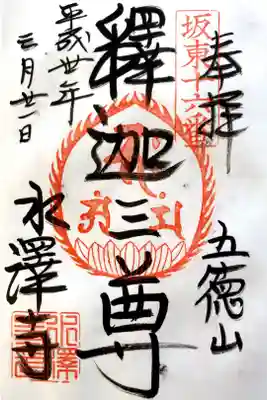 坂東十六番
奉拝
五德山
釋迦三尊
水澤寺
平成丗年
三月廿一日